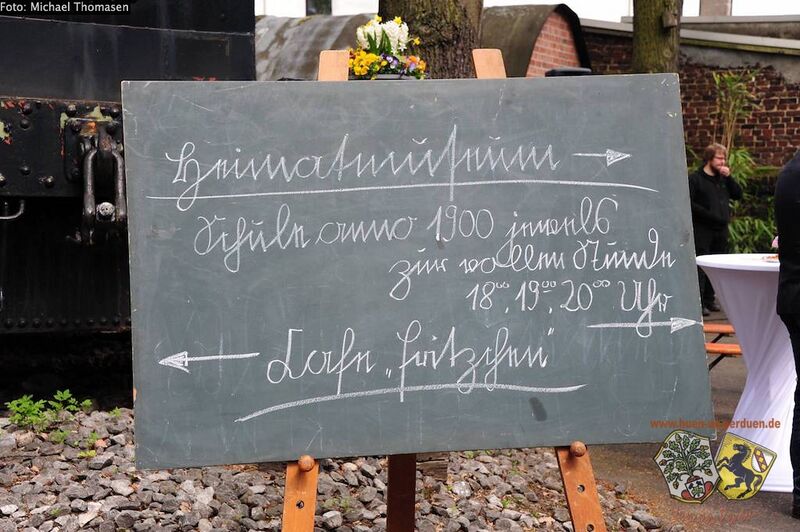 Foto: Michael Thomasen
Heimatmuseum →
Schule anno 1900 jeweils
zur vollen Stunde
18⁰⁰, 19⁰⁰, 20⁰⁰ Uhr
← Cafe „Fritzchen“ →